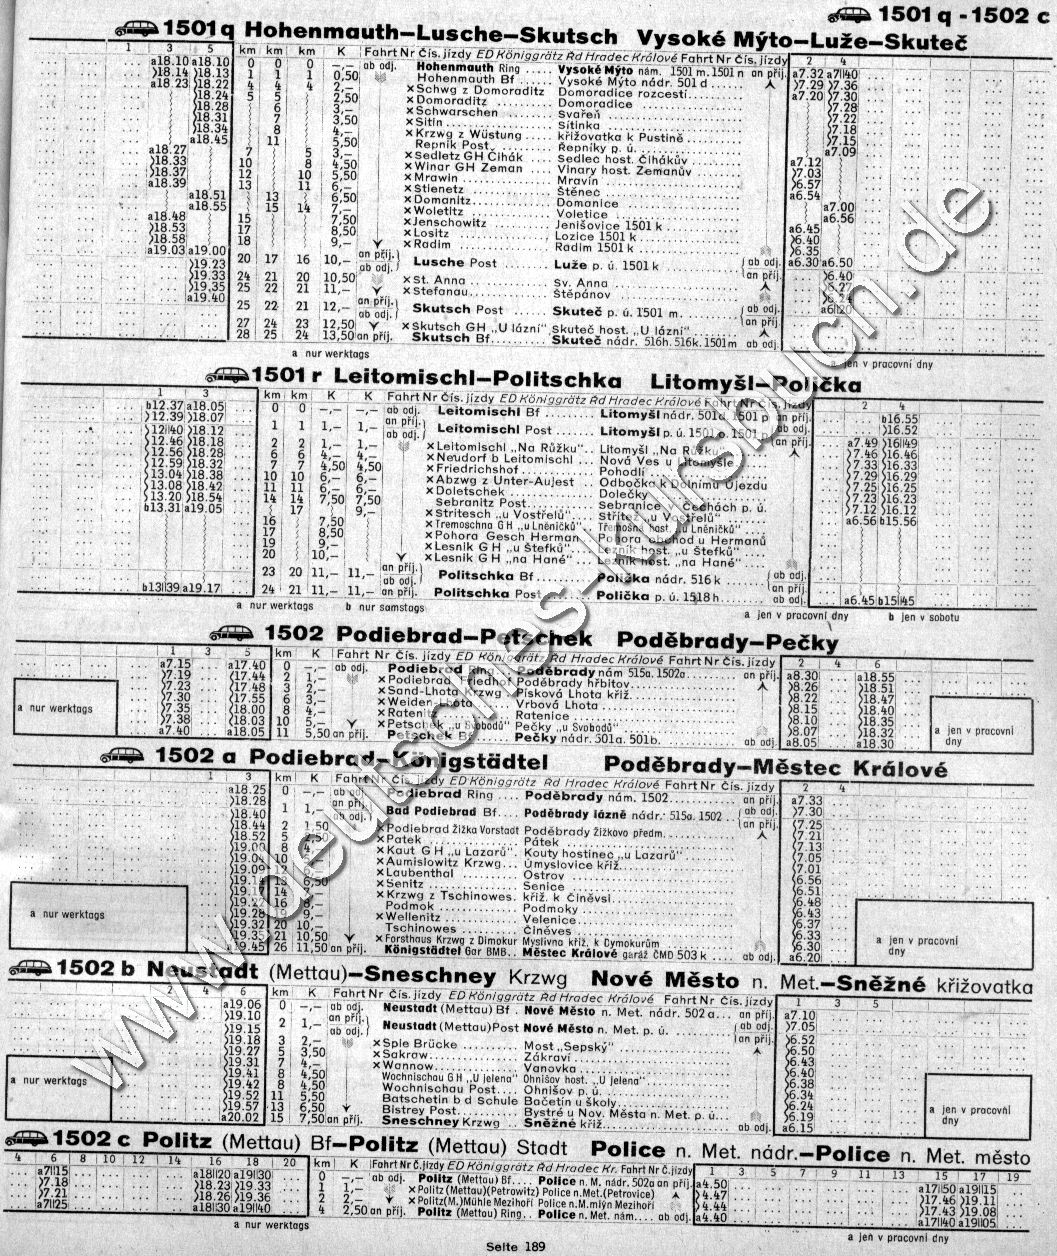 1501 q - 1502 c
1501q Hohenmauth–Lusche–Skutsch Vysoké Mýto–Luže–Skuteč
1 3 5 km km km K Fahrt Nr Čís. jízdy ED Königgrätz Řd Hradec Králové Fahrt Nr Čís. jízdy 2 4
a18.10 a18.10 0 0 0 –,– ab odj. Hohenmauth Ring Vysoké Mýto nám. 1501 m. 1501 n an příj. a7.32 a7 40
18.14 18.13 1 1 1 0,50 Hohenmauth Bf Vysoké Mýto nádr. 501 d 7.29 7.36
a18 23 18.22 4 4 4 2,– × Schwg z Domoraditz Domoradice rozcestí a7.20 7.30
18.24 5 5 2,50 × Domoraditz Domoradice 7.28
18.28 6 3,– × Schwarschen Svařeň 7.22
18.31 7 3,50 × Sitin Sítinka 7.18
18.34 8 4,– × Krzwg z Wüstung křižovatka k Pustině 7.15
a18.45 11 5,50 Repnik Post Řepníky p. ú. a7.09
a18.27 7 5 3,– × Sedletz GH Čihák Sedlec host. Čihákův a7.12
18.33 10 8 4,50 × Winar GH Zeman Vinary host. Zemanův 7.03
18.37 12 10 5,50 × Mrawin Mravín 6.57
a18.39 13 11 6,– × Stienetz Štěnec a6.54
a18.51 13 6,50 × Domanitz Domanice a7.00
a18.55 15 14 7,– × Woletitz Voletice a6.56
a18.48 15 7,50 × Jenschowitz Jenišovice 1501 k a6.45
18.53 17 8,50 × Lositz Lozice 1501 k 6.40
18.58 18 9,– × Radim Radim 1501 k 6.35
a19.03 a19.00 20 17 16 10,– an příj. ab odj. Lusche Post Luže p. ú. 1501 k ab odj. an příj. a6.30 a6.50
19 23 24 21 20 10,50 × St. Anna Sv. Anna 6.40
19.33
19.35 25 22 21 11,– × Stefanau Štěpánov 6.27
a19.40 25 22 21 12,– an příj. ab odj. Skutsch Post Skuteč p. ú. 1501 m. ab odj. an příj.
27 24 23 12,50 × Skutsch GH „U lázní“ Skuteč host. „U lázní“
28 25 24 13,50 an příj. Skutsch Bf Skuteč nádr. 516h. 516k. 1501m ab odj.
a nur werktags a jen v pracovní dny
1501 r Leitomischl–Politschka Litomyšl–Polička
1 3 km km K K Fahrt Nr Čís. jízdy ED Königgrätz Řd Hradec Králové Fahrt Nr Čís. jízdy 2 4
b12.37 a18.05 0 0 –,– –,– ab odj. Leitomischl Bf Litomyšl nádr. 501d. 1501 p an příj. b16.55
12.39 18.07 1 1 1,– 1,– an příj. ab odj. Leitomischl Post Litomyšl p. ú. 1501 o. 1501 p ab odj. an příj. 16.52
12 40 18.12
12.46 18.18 2 2 1,– 1,– × Leitomischl „Na Růžku“ Litomyšl „Na Růžku“ a7.49 16 49
12.56 18.28 6 6 4,– 4,– × Neudorf b Leitomischl Nová Ves u Litomyšle 7.46 16.46
12.59 18.32 7 7 4,50 4,50 × Friedrichshof Pohodlí 7.33 16.33
13.04 18.38 10 10 6,– 6,– × Abzwg z Unter-Aujest Odbočka k Dolnímu Újezdu 7.29 16.29
13.08 18.42 11 11 6,– 6,– × Doletschek Dolečky 7.25 16.25
13.20 18.54 14 14 7,50 7,50 Sebranitz Post Sebranice u Čechách p. ú. 7.23 16.23
b13.31 a19.05 17 9,– × Stritesch „u Vostřelů“ Střítež „u Vostřelů“ 7.12 16.12
16 7,50 × Tremoschna GH „u Lněničků“ Třemošná host. „u Lněničků“ a6.56 b15.56
17 8,50 × Pohora Gesch Herman Pohora obchod u Hermanů
19 9,– × Lesnik GH „u Štefků“ Lezník host. „u Štefků“
20 10,– × Lesnik GH „na Hané“ Lezník host. „na Hané“
23 20 11,– 11,– an příj. ab odj. Politschka Bf Polička nádr. 516 k ab odj. an příj.
b13 39 a19.17 24 21 11,– 11,– an příj. Politschka Post Polička p. ú. 1518 h ab odj. a6.45 b15 45
a nur werktags b nur samstags a jen v pracovní dny b jen v sobotu
1502 Podiebrad–Petschek Poděbrady–Pečky
1 3 5 km K Fahrt Nr Čís. jízdy ED Königgrätz Řd Hradec Králové Fahrt Nr Čís. jízdy 2 4 6
a7.15 a17.40 0 –,– ab odj. Podiebrad Ring Poděbrady nám 515a. 1502a an příj. a8.30 a18.55
7.19 17.44 2 1,– × Podiebrad Friedhof Poděbrady hřbitov 8.26 18.51
7.23 17.48 3 2,– × Sand-Lhota Krzwg Písková Lhota křiž. 8.22 18.47
7.30 17.55 6 3,– × Weiden-Lhota Vrbová Lhota 8.15 18.40
7.35 18.00 8 4,– × Ratenitz Ratenice 8.10 18.35
7.38 18.03 10 5,– × Petschek „u Svobodů“ Pečky „u Svobodů“ 8.07 18.32
a7.40 a18.05 11 5,50 an příj. Petschek Bf Pečky nádr. 501a. 501b. ab odj. a8.05 a18.30
a nur werktags a jen v pracovní dny
1502 a Podiebrad–Königstädtel Poděbrady–Městec Králové
1 3 km K Fahrt Nr Čís. jízdy ED Königgrätz Řd Hradec Králové Fahrt Nr Čís. jízdy 2 4
a18.25 0 –,– ab odj. Podiebrad Ring Poděbrady nám. 1502 an příj. a7.33
18.28 1 1,– an příj. ab odj. Bad Podiebrad Bf Poděbrady lázně nádr. 515a. 1502 ab odj. an příj. 7.30
18.40 7.25
18.44 2 1,50 × Podiebrad Žižka Vorstadt Poděbrady Žižkovo předm. 7.21
18.52 5 × Patek Pátek 7.13
19.00 8 × Kaut GH „u Lazarů“ Kouty hostinec „u Lazarů“ 7.05
19.04 10 × Aumislowitz Krzwg Úmyslovice křiž. 7.01
19.09 12 × Laubenthal Ostrov 6.56
13 6,50 × Senitz Senice 6.51
14 × Krzwg z Tschinowes. křiž. k Činěvsi 6.48
16 8,– Podmok Podmoky 6.43
19.28 × Wellenitz Velenice 6.37
19.32 20 10,– Tschinowes Činěves 6.33
21 10,50 × Forsthaus Krzwg z Dimokur Myslivna křiž. k Dymokurům 6.30
26 11,50 an příj. Königstädtel Gar BMB Městec Králové garáž ČMD 503 k ab odj. a6.20
a nur werktags a jen v pracovní dny
1502 b Neustadt (Mettau)–Sneschney Krzwg Nové Město n. Met.–Sněžné křižovatka
2 4 6 km K Fahrt Nr Čís. jízdy ED Königgrätz Řd Hradec Králové Fahrt Nr Čís. jízdy 1 3 5
a19.06 0 –,– ab odj. Neustadt (Mettau) Bf Nové Město n. Met. nádr. 502 a an příj. a7.10
19.10 2 1,– an příj. ab odj. Neustadt (Mettau) Post Nové Město n. Met. p. ú. ab odj. an příj. 7.05
19.15
19.18 3 2,– × Spie Brücke Most „Sepský“ 6.52
19.27 5 3,50 × Sakraw Zákraví 6.50
19.31 7 4,– × Wannow Vanovka 6.43
19.41 8 4,50 Wochnischau GH „U Jelena“ Ohnišov host. „U Jelena“ 6.40
19.42 8 4,50 Wochnischau Post Ohnišov p. ú. 6.38
19.52 11 5,50 Batschetin b d Schule Bačetín u školy 6.34
19.57 13 6,50 Bistrey Post Bystré u Nov. Města n. Met. p. ú. 6.24
6.19
a20.02 15 7,50 an příj. Sneschney Krzwg Sněžné křiž. ab odj. a6.15
a nur werktags a jen v pracovní dny
1502 c Politz (Mettau) Bf–Politz (Mettau) Stadt Police n. Met. nádr.–Police n. Met. město
4 6 8 10 12 14 16 18 20 km K Fahrt Nr Č. jízdy ED Königgrätz Řd Hradec Kr. Fahrt Nr Č. jízdy 1 3 5 7 9 11 13 15 17 19
a7 15 a18 20 a19 30 0 –,– ab odj. Politz (Mettau) Bf Police n. M. nádr. 502a an příj. a4.50 a17 50 a19 15
7.18 18.23 19.33 1 1,– × Politz (Mettau)(Petrowitz) Police n.Met.(Petrovice) 4.47 17.46 19.11
7.21 18.26 19.36 2 2,– × Politz(M.)Mühle Mezihoří Police n.M.mlýn Mezihoří 4.44 17.43 19.08
a7 25 a18 30 a19 40 4 2,50 an příj. Politz (Mettau) Ring Police n. Met. nám. ab odj. a4.40 a17 40 a19 05
a nur werktags a jen v pracovní dny
Seite 189
www.deutsches-kursbuch.de